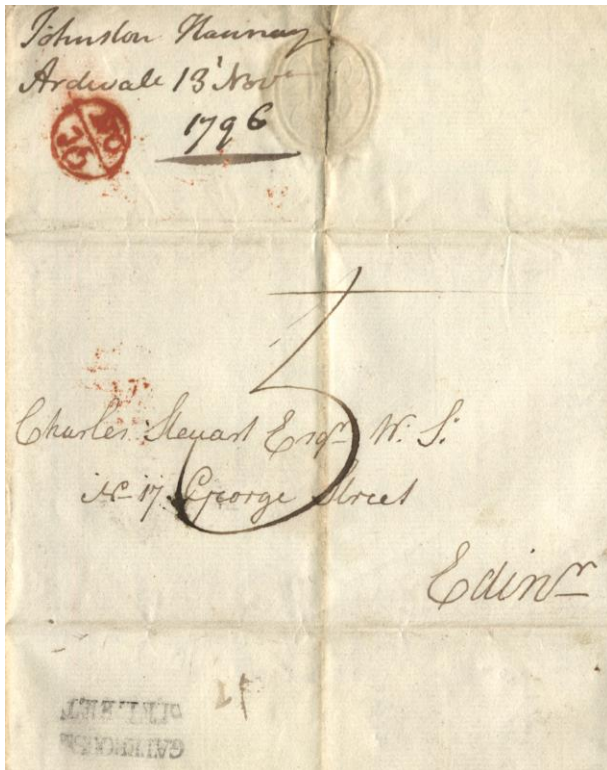 Johnston Hannay
Ardwall 13 Novr
1796
NO 15
5
Charles Steuart Esqr. W. S.
No 17 George Street
Edinr
GATEHOUSE